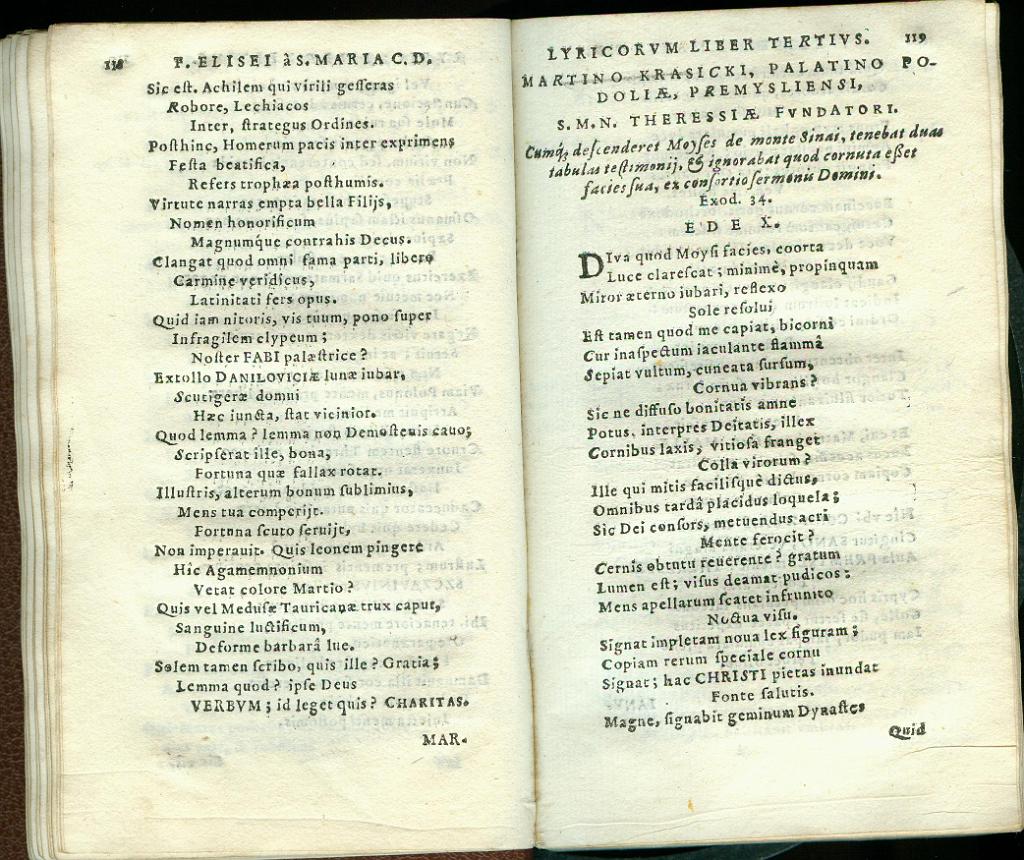 118 P. ELISEI à S. MARIA C. D.
Sic eſt. Achilem qui virili geſſeras
Robore, Lechiacos
Inter, ſtrategus Ordines.
Poſthinc, Homerum pacis inter exprimens
Feſta beatifica,
Refers trophæa poſthumis.
Virtute narras empta bella Filijs,
Nomen honorificum
Magnumq́ue contrahis Decus.
Clangat quod omni fama parti, libero
Carmine veridicus,
Latinitati fers opus.
Quid iam nitoris, vis tuum, pono ſuper
Infragilem clypeum;
Noſter FABI palæſtrice?
Extollo DANILOVICIÆ lunæ iubar,
Scutigeræ domui
Hæc iuncta, ſtat vicinior.
Quod lemma? lemma non Demoſtenis cauo;
Scripſerat ille, bona,
Fortuna quæ fallax rotat.
Illuſtris, alterum bonum ſublimius,
Mens tua comperijt.
Fortuna ſcuto ſeruijt,
Non imperauit. Quis leonem pingere
Hic Agamemnonium
Vetat colore Martio?
Quis vel Meduſæ Tauricanæ trux caput,
Sanguine luctificum,
Deforme barbarâ lue.
Solem tamen ſcribo, quis ille? Gratia;
Lemma quod? ipſe Deus
VERBVM; id leget quis? CHARITAS.
MAR-
LYRICORVM LIBER TERTIVS. 119
MARTINO KRASICKI, PALATINO PO-
DOLIÆ, PREMYSLIENSI,
S. M. N. THERESSIÆ FVNDATORI.
Cumq́; deſcenderet Moyſes de monte Sinai, tenebat duas
tabulas teſtimonij, & ignorabat quod cornuta eſſet
facies ſua, ex conſortio ſermonis Domini.
Exod. 34.
E D E X.
DIva quod Moyſi facies, coorta
Luce clareſcat; minimè, propinquam
Miror æterno iubari, reflexo
Sole reſolui
Eſt tamen quod me capiat, bicorni
Cur inaſpectum iaculante flammâ
Sepiat vultum, cuneata ſurſum,
Cornua vibrans?
Sic ne diffuſo bonitatis amne
Potus, interpres Deitatis, illex
Cornibus laxis, vitioſa franget
Colla virorum?
Ille qui mitis faciliſquè dictus,
Omnibus tardâ placidus loquela;
Sic Dei conſors, metuendus acri
Mente ferocit?
Cernis obtutu reuerente? gratum
Lumen eſt; viſus deamat pudicos:
Mens apellarum ſcatet infrunito
Noctua viſu.
Signat impletam noua lex figuram;
Copiam rerum ſpeciale cornu
Signat; hac CHRISTI pietas inundat
Fonte ſalutis.
Magne, ſignabit geminum Dynaſtes
Quid